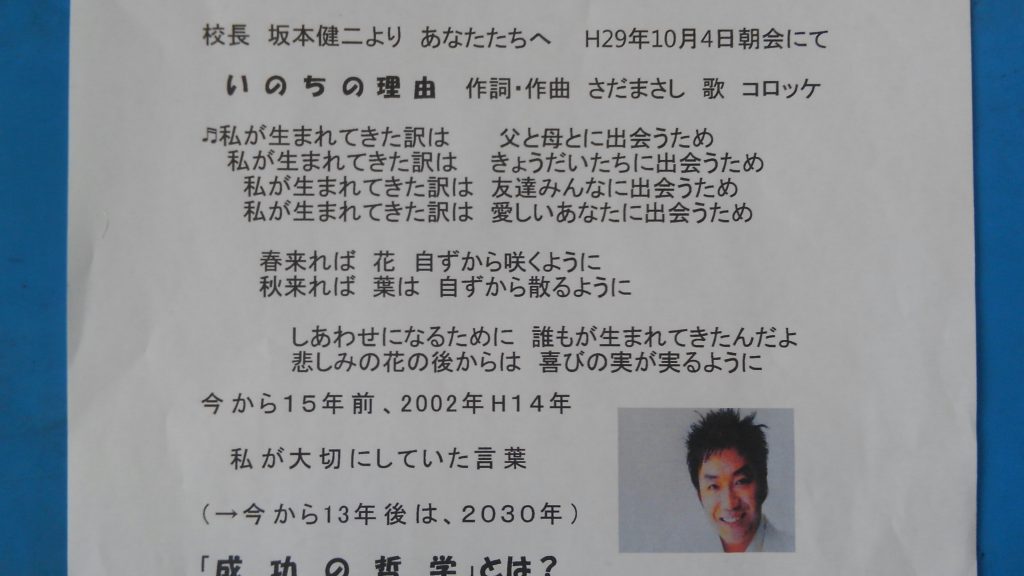 校長 坂本健二より あなたたちへ H29年10月4日朝会にて
いのちの理由 作詞・作曲 さだまさし 歌 コロッケ
♬私が生まれてきた訳は 父と母とに出会うため
私が生まれてきた訳は きょうだいたちに出会うため
私が生まれてきた訳は 友達みんなに出会うため
私が生まれてきた訳は 愛しいあなたに出会うため
春来れば 花 自ずから咲くように
秋来れば 葉は 自ずから散るように
しあわせになるために 誰もが生まれてきたんだよ
悲しみの花の後からは 喜びの実が実るように
今から15年前、2002年H14年
私が大切にしていた言葉
(→今から13年後は、2030年)
「成功の哲学」とは?